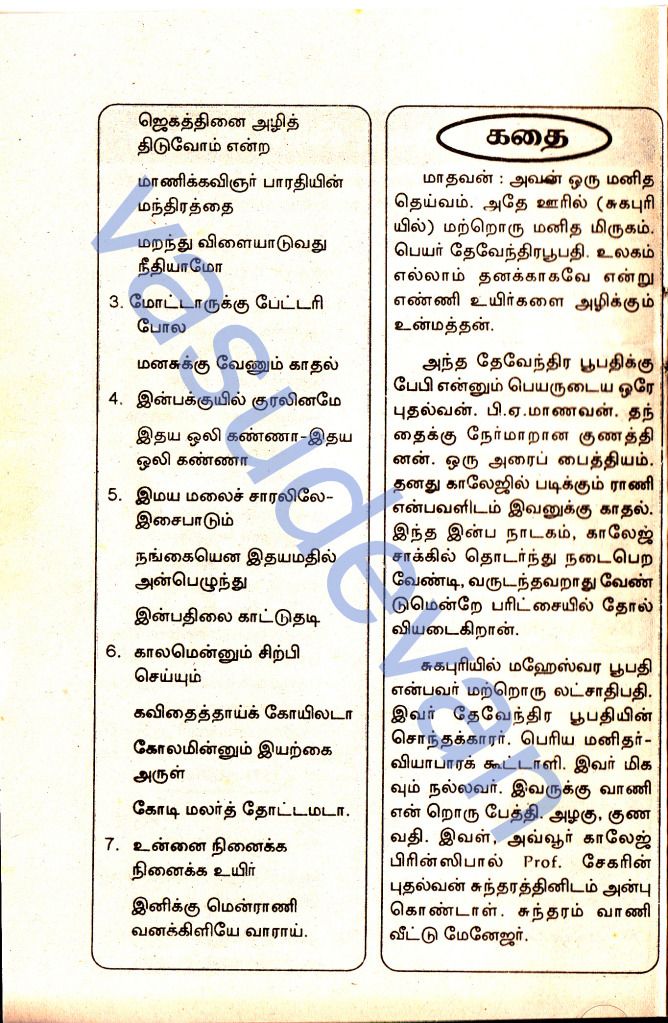 ஜெகத்தினை அழித்
திடுவோம் என்ற
மாணிக்கவிஞர் பாரதியின்
மந்திரத்தை
மறந்து விளையாடுவது
நீதியாமோ
3. மோட்டாருக்கு பேட்டரி
போல
மனசுக்கு வேணும் காதல்
4. இன்பக்குயில் குரலினமே
இதய ஒலி கண்ணா-இதய
ஒலி கண்ணா
5. இமய மலைச் சாரலிலே-
இசைபாடும்
நங்கையென இதயமதில்
அன்பெழுந்து
இன்பதிலை காட்டுதடி
6. காலமென்னும் சிற்பி
செய்யும்
கவிதைத்தாய்க் கோயிலடா
கோலமின்னும் இயற்கை
அருள்
கோடி மலர்த் தோட்டமடா.
7. உன்னை நினைக்க
நினைக்க உயிர்
இனிக்கு மென்ராணி
வனக்கிளியே வாராய்.
கதை
மாதவன் : அவன் ஒரு மனித
தெய்வம். அதே ஊரில் (சுகபுரி
யில்) மற்றொரு மனித மிருகம்.
பெயர் தேவேந்திரபூபதி. உலகம்
எல்லாம் தனக்காகவே என்று
எண்ணி உயிர்களை அழிக்கும்
உன்மத்தன்.
அந்த தேவேந்திர பூபதிக்கு
பேபி என்னும் பெயருடைய ஒரே
புதல்வன். பி.ஏ.மாணவன். தந்
தைக்கு நேர்மாறான குணத்தி
னன். ஒரு அரைப் பைத்தியம்.
தனது காலேஜில் படிக்கும் ராணி
என்பவளிடம் இவனுக்கு காதல்.
இந்த இன்ப நாடகம், காலேஜ்
சாக்கில் தொடர்ந்து நடைபெற
வேண்டி, வருடந்தவறாது வேண்
டுமென்றே பரிட்சையில் தோல்
வியடைகிறான்.
சுகபுரியில் மஹேஸ்வர பூபதி
என்பவர் மற்றொரு லட்சாதிபதி.
இவர் தேவேந்திர பூபதியின்
சொந்தக்காரர். பெரிய மனிதர்-
வியாபாரக் கூட்டாளி. இவர் மிக
வும் நல்லவர். இவருக்கு வாணி
என் றொரு பேத்தி. அழகு, குண
வதி. இவள், அவ்வூர் காலேஜ்
பிரின்ஸிபால் Prof. சேகரின்
புதல்வன் சுந்தரத்தினிடம் அன்பு
கொண்டாள். சுந்தரம் வாணி
வீட்டு மேனேஜர்.
vasudevan